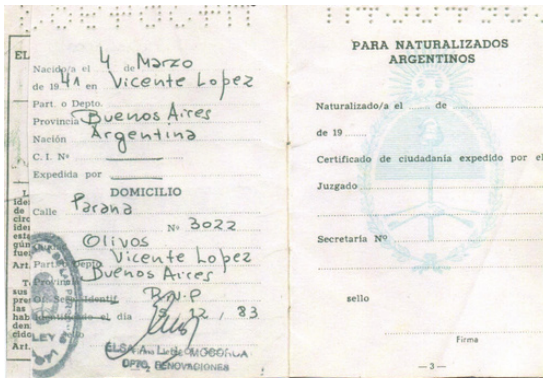 EL
Nacido/a el 4 de Marzo
de 1941 en Vicente Lopez
Part. o Depto.
Provincia Buenos Aires
Nación Argentina
C. I. Nº
Expedida por
DOMICILIO
Calle Parana
Nº 3022
Olivos
Part. o Depto. Vicente Lopez
Provincia Buenos Aires
Of. Secc. Identif. R.N.P
Identificado el día 19 12, 83
LEY
Art.
DPTO, RENOVACIONES
PARA NATURALIZADOS
ARGENTINOS
Naturalizado/a el de
de 19
Certificado de ciudadanía expedido por el
Juzgado
Secretaría Nº
sello
Firma
— 3 —